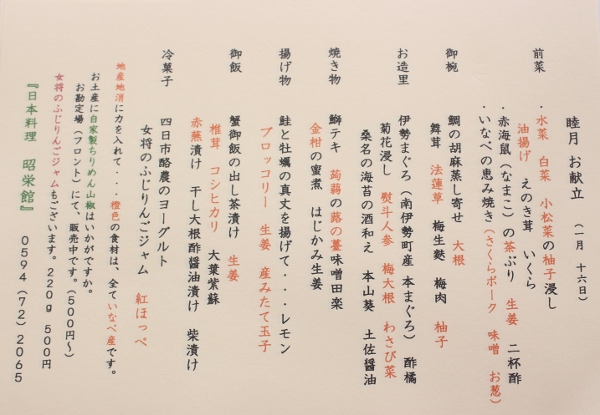 睦月 お献立 (一月 十六日)
前菜
・水菜 白菜 小松菜の柚子浸し
油揚げ えのき茸 いくら
・赤海鼠(なまこ)の茶ぶり 生姜 二杯酢
・いなべの恵み焼き(さくらポーク 味噌 お葱)
御椀
鯛の胡麻蒸し寄せ 大根
舞茸 法蓮草 梅生麩 梅肉 柚子
お造里
伊勢まぐろ(南伊勢町産 本まぐろ) 酢橘
菊花浸し 熨斗人参 梅大根 わさび菜
桑名の海苔の酒和え 本山葵 土佐醤油
焼き物
鰤テキ 蒟蒻の蕗の薹味噌田楽
金柑の蜜煮 はじかみ生姜
揚げ物
鮭と牡蠣の真丈を揚げて・・・レモン
ブロッコリー 生姜 産みたて玉子
御飯
蟹御飯の出し茶漬け 生姜
椎茸 コシヒカリ 大葉紫蘇
赤蕪漬け 干し大根酢醤油漬け 柴漬け
冷菓子
四日市酪農のヨーグルト
女将のふじりんごジャム 紅ほっぺ
地産地消に力を入れて・・・橙色の食材は、全ていなべ産です。
お土産に自家製ちりめん山椒はいかがですか。
お勘定場(フロント)にて、販売中です。(500円~)
女将のふじりんごジャムもございます。220g 500円
『日本料理 昭栄館』 0594(72)2065